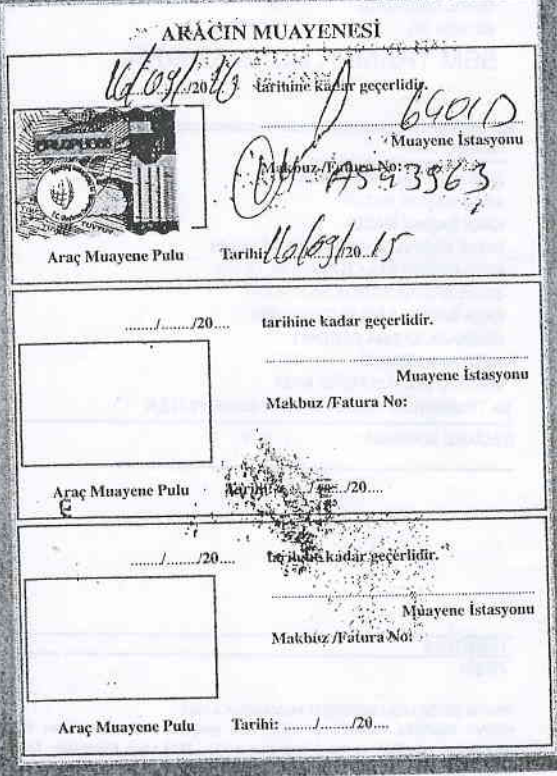 ARACIN MUAYENESİ
16/09/2016 tarihine kadar geçerlidir.
Muayene İstasyonu
Makbuz /Fatura No:
Araç Muayene Pulu Tarihi: 16/09/2015
......../......../20.... tarihine kadar geçerlidir.
Muayene İstasyonu
Makbuz /Fatura No:
Araç Muayene Pulu Tarihi: ......./......./20....
......../......../20.... tarihine kadar geçerlidir.
Muayene İstasyonu
Makbuz /Fatura No:
Araç Muayene Pulu Tarihi: ......../......../20....